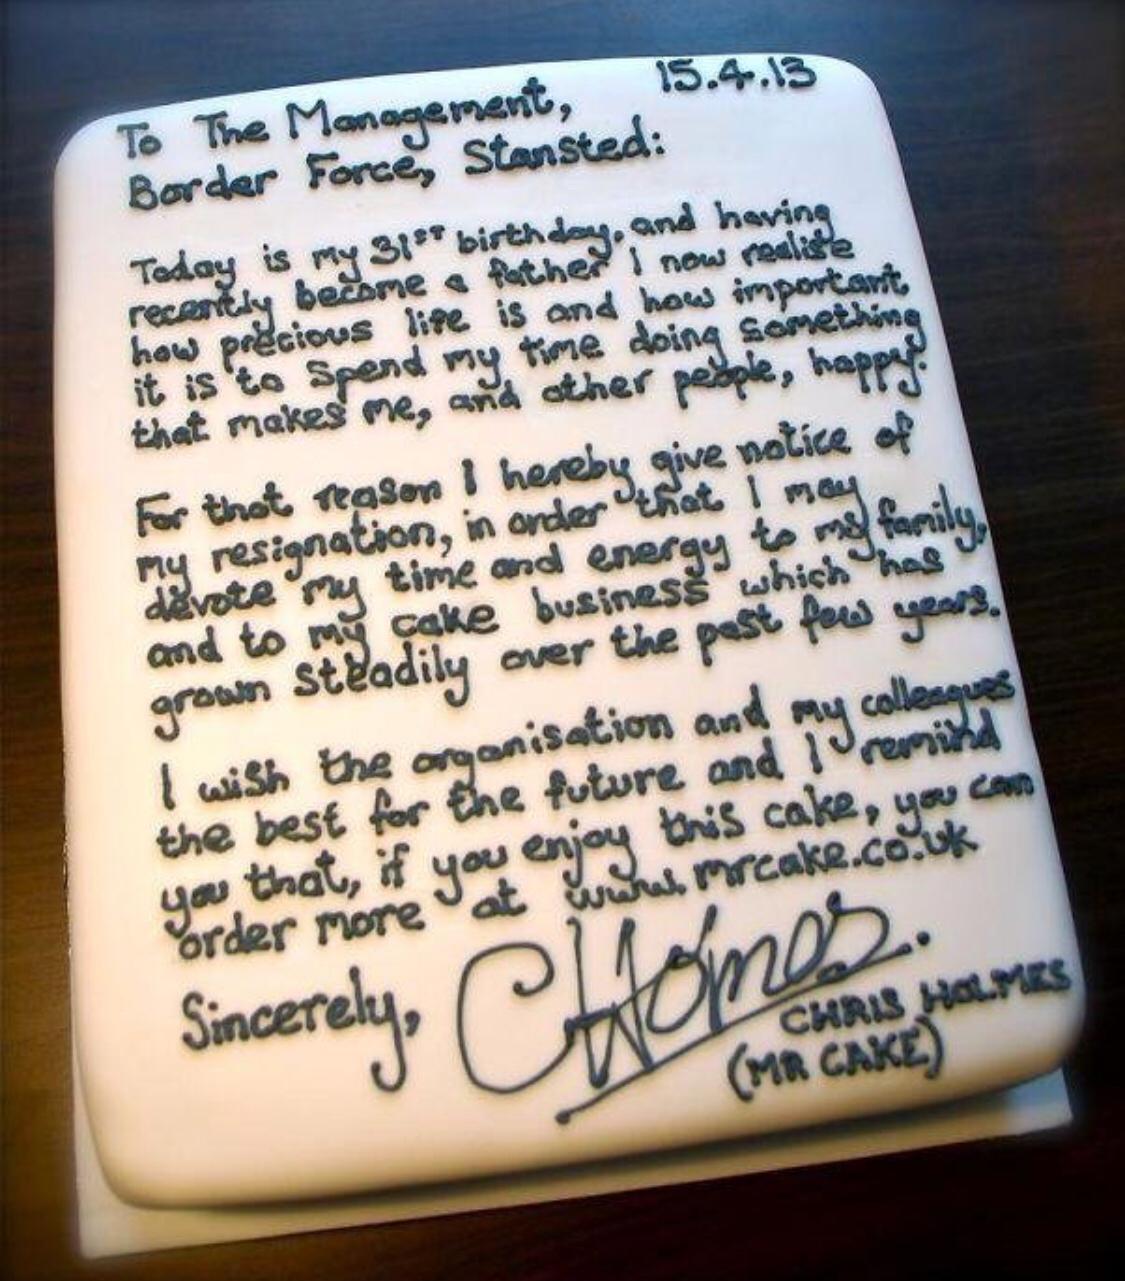 15.4.13
To The Management,
Border Force, Stansted:
Today is my 31ST birthday, and having
recently become a father I now realise
how precious life is and how important
it is to spend my time doing something
that makes me, and other people, happy.
For that reason I hereby give notice of
my resignation, in order that I may
devote my time and energy to my family,
and to my cake business which has
grown steadily over the past few years.
I wish the organisation and my colleagues
the best for the future and I remind
you that, if you enjoy this cake, you can
order more at www.mrcake.co.uk
Sincerely, CHolmes.
CHRIS HOLMES
(MR CAKE)